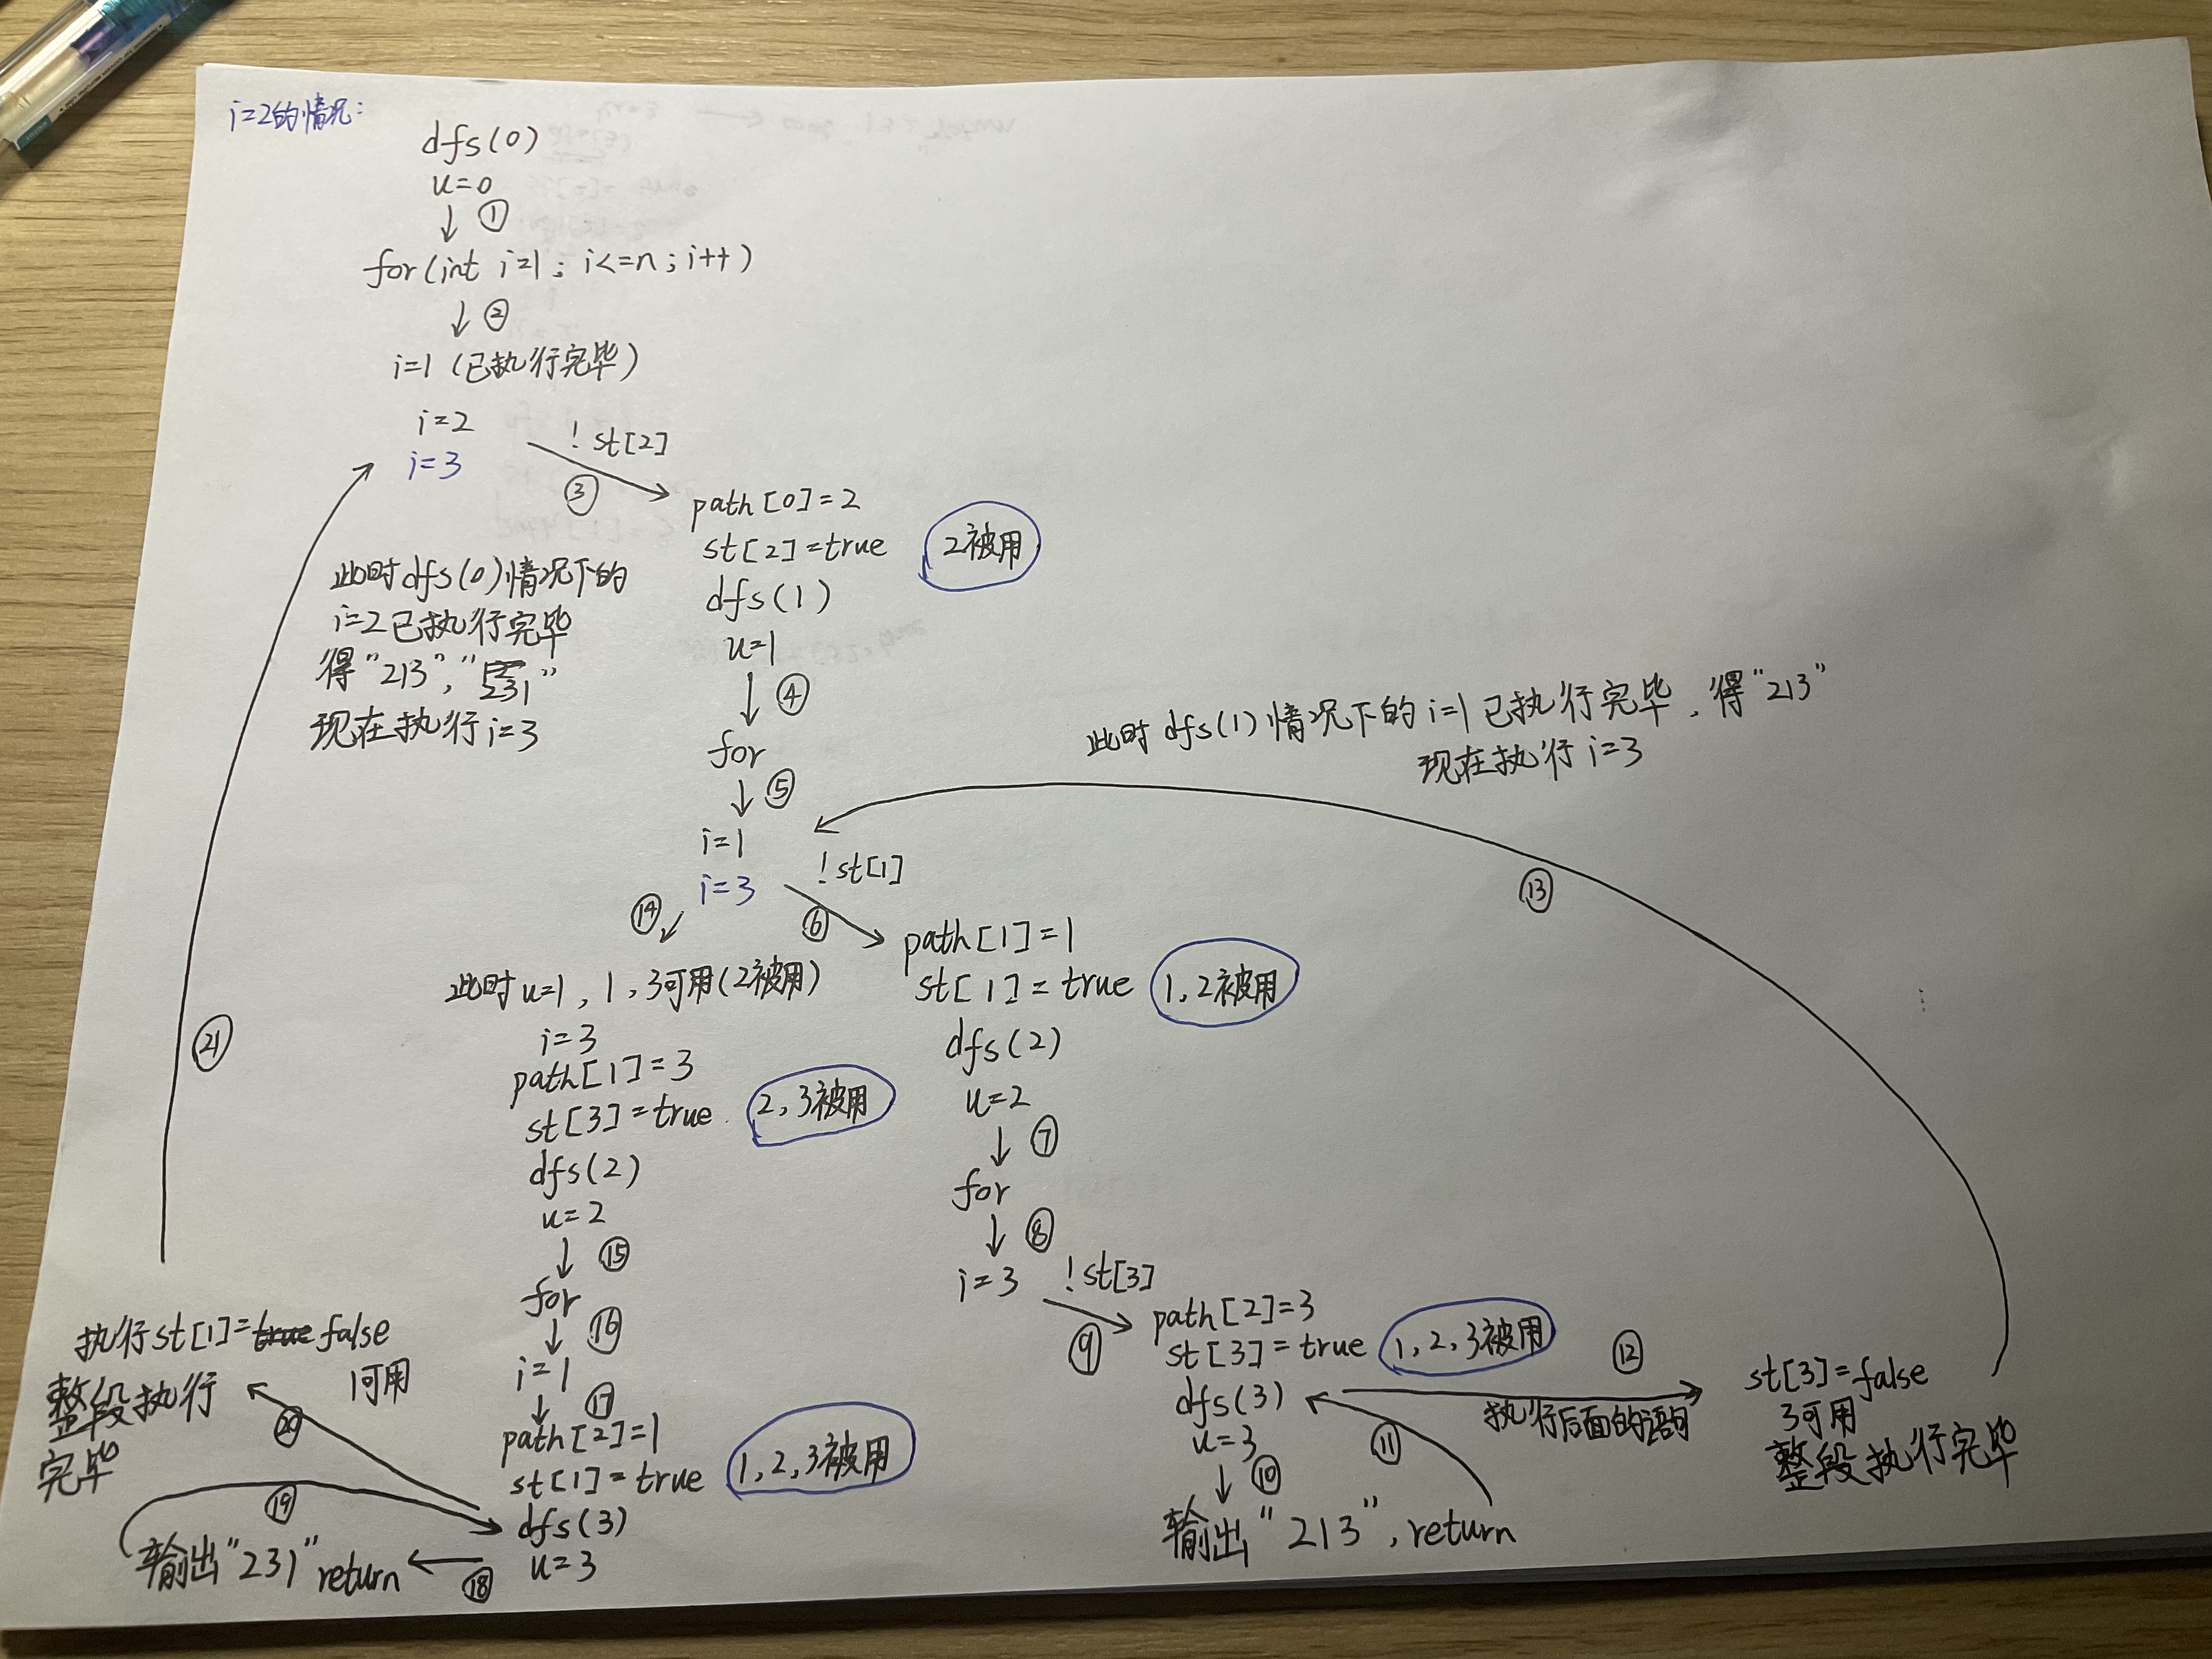 i=2的情况:
dfs(0)
u=0
↓ ①
for(int i=1; i<=n; i++)
↓ ②
i=1 (已执行完毕)
i=2
! st[2]
i=3
③
path[0]=2
st[2]=true
2被用
dfs(1)
u=1
↓ ④
for
↓ ⑤
i=1
! st[1]
i=3
此时dfs(0)情况下的
i=2已执行完毕
得"213","231"
现在执行i=3
㉑
此时dfs(1)情况下的i=1已执行完毕, 得"213"
现在执行i=3
⑬
⑥
path[1]=1
st[1]=true
1,2被用
dfs(2)
u=2
↓ ⑦
for
↓ ⑧
i=3 ! st[3]
⑨
path[2]=3
st[3]=true
1,2,3被用
dfs(3)
u=3
↓ ⑩
输出"213", return
⑪
⑫
执行后面的语句
st[3]=false
3可用
整段执行完毕
⑭
此时u=1, 1,3可用(2被用)
i=3
path[1]=3
st[3]=true
2,3被用
dfs(2)
u=2
↓ ⑮
for
↓ ⑯
i=1
↓ ⑰
path[2]=1
st[1]=true
1,2,3被用
dfs(3)
u=3
⑱
输出"231" return
⑲
⑳
执行st[1]=true false
1可用
整段执行
完毕